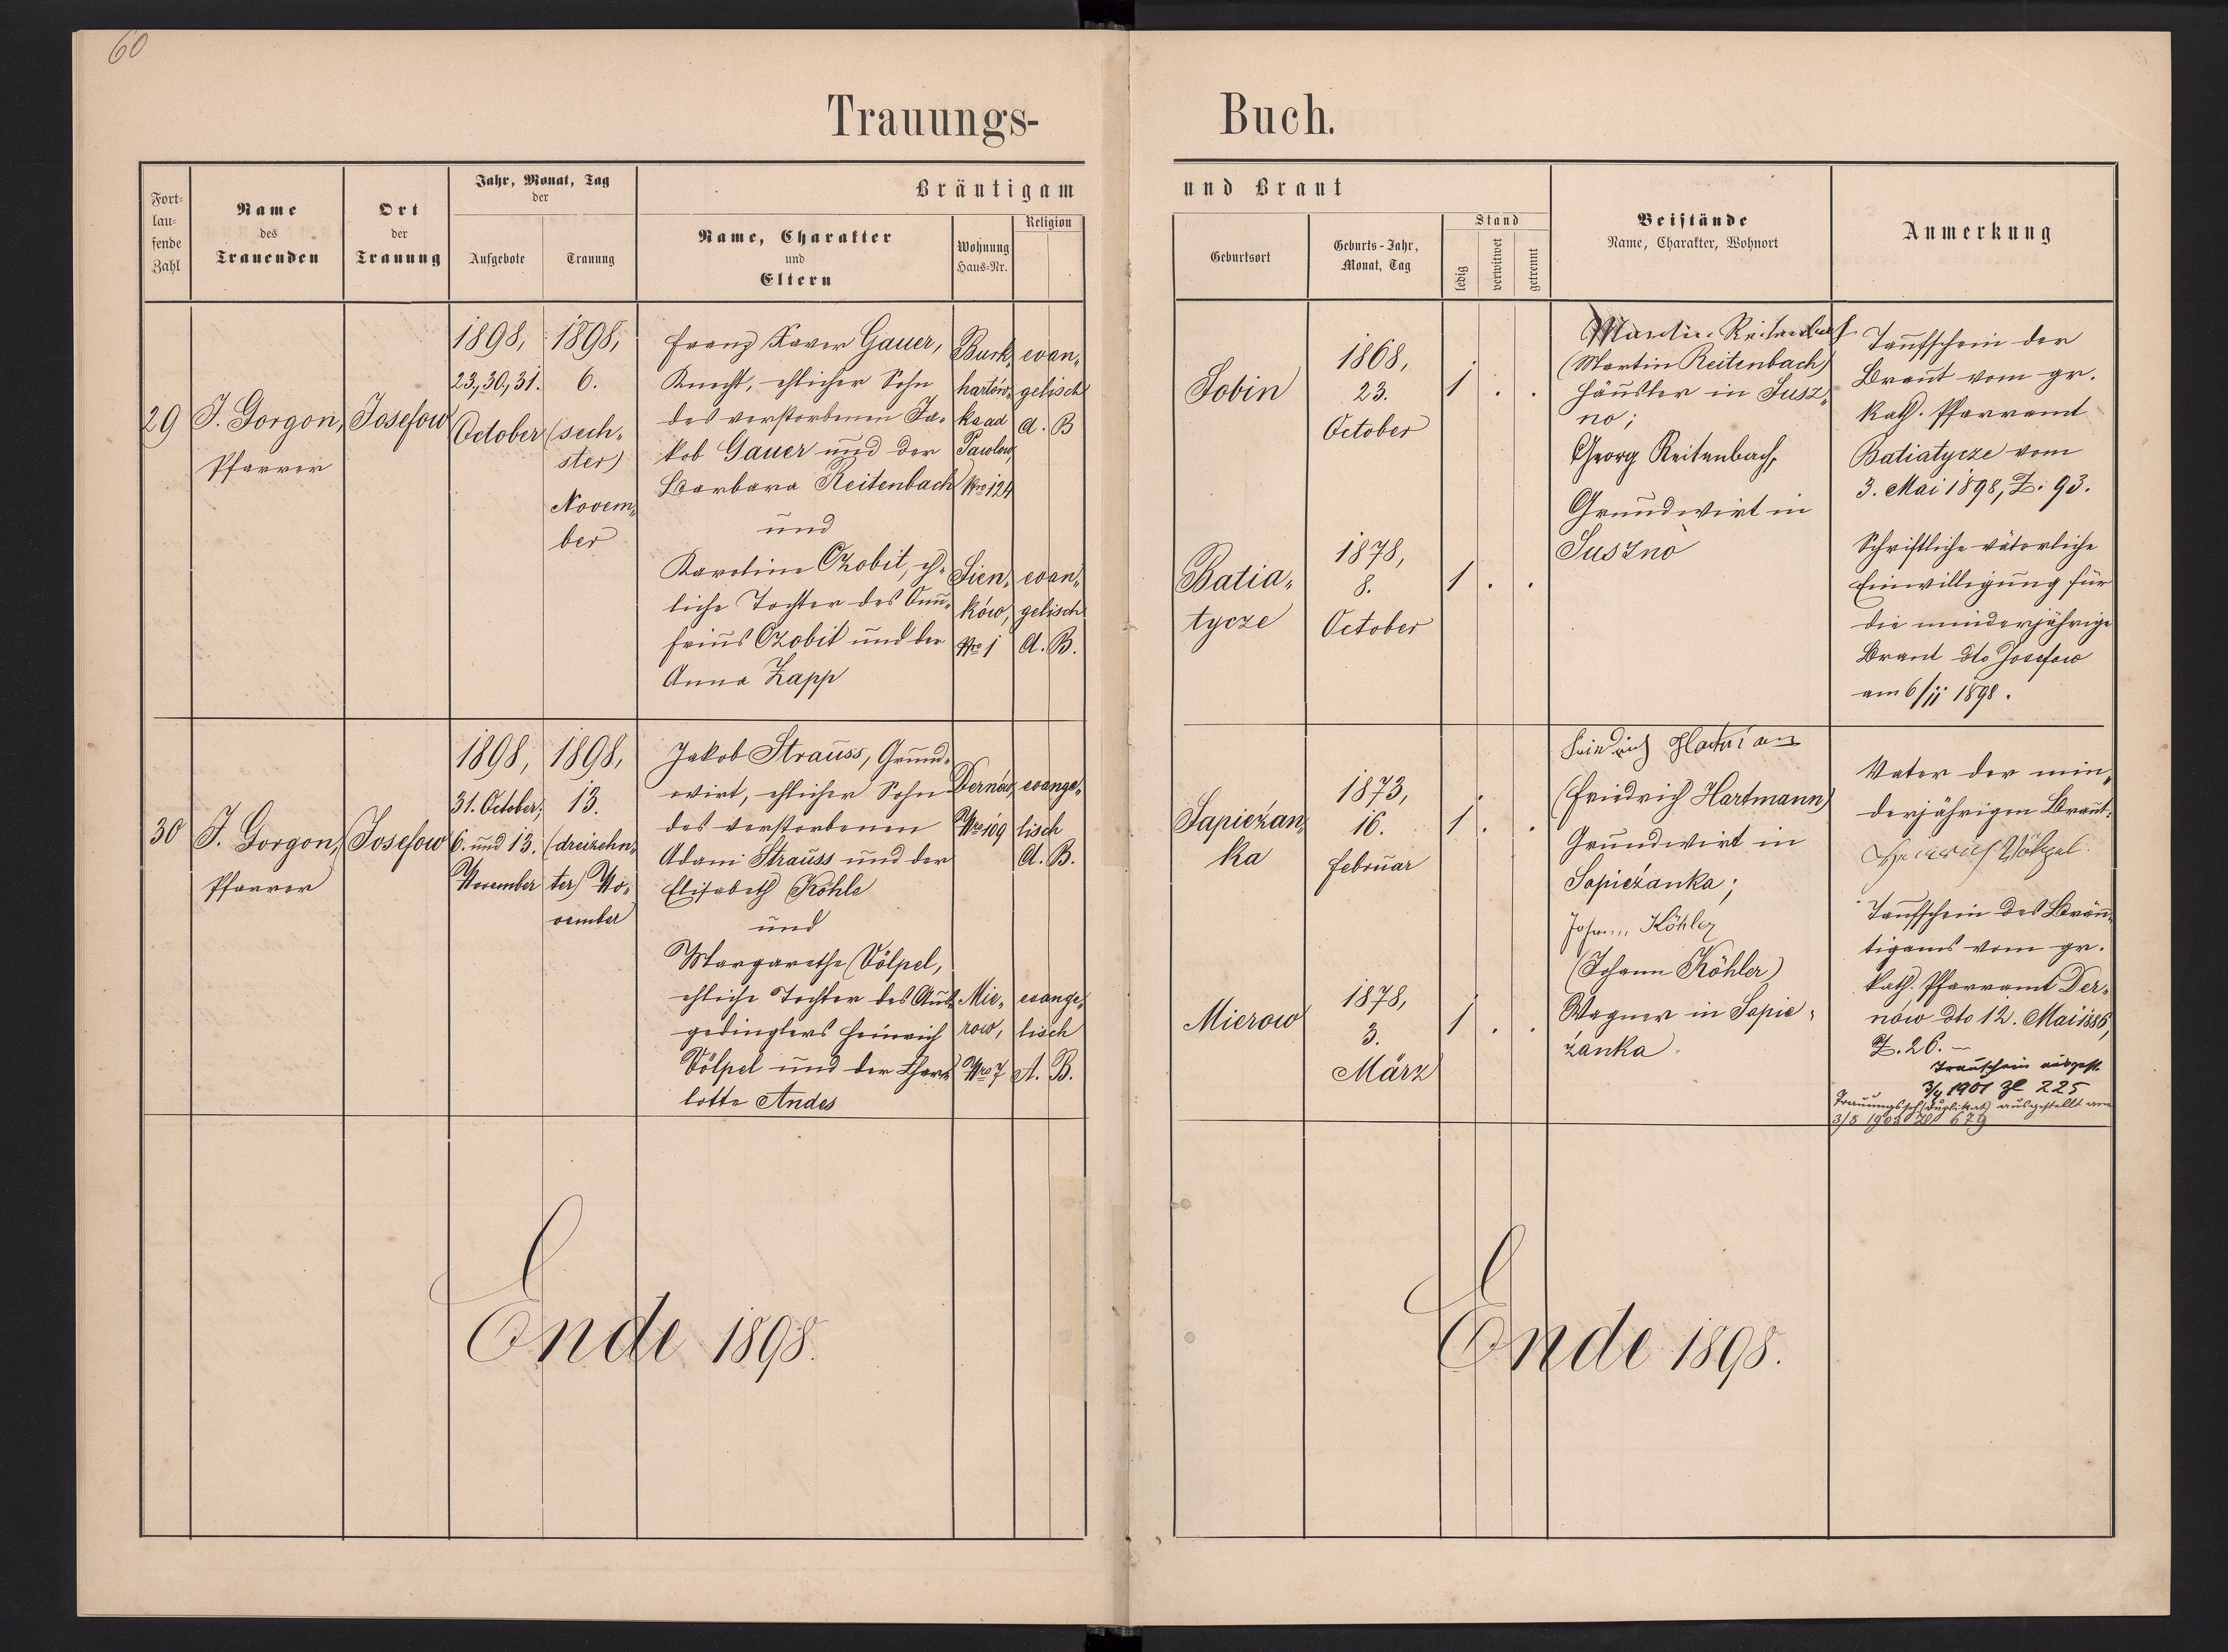 60
Trauungs-
Buch.
Fort-
lau-
fende
Zahl
Name
des
Trauenden
Ort
der
Trauung
Jahr, Monat, Tag
der
Aufgebote
Trauung
Bräutigam
Name, Charakter
und
Eltern
Wohnung
Haus-Nr.
Religion
und Braut
Geburtsort
Geburts-Jahr,
Monat, Tag
Stand
ledig
verwitwet
getrennt
Beistände
Name, Charakter, Wohnort
Anmerkung
29
J. Gorgon,
Pfarrer
Josefow
1898,
23., 30., 31.
October
1898,
6.
(sech-
ster)
Novem-
ber
Franz Xaver Gauer,
Knecht, ehlicher Sohn
des verstorbenen Ja-
kob Gauer und der
Barbara Reitenbach
und
Karoline Czobit, eh-
liche Tochter des Onu-
frius Czobit und der
Anna Zapp
Burk-
hartów-
ka ad
Pawlow,
Nro 124
evan-
gelisch
A. B
Sien-
ków,
Nro 1
evan-
gelisch
A. B.
Sobin
1868,
23.
October
1 . .
Batia-
tycze
1878,
8.
October
1 . .
Martin Reitenbach
(Martin Reitenbach)
Häusler in Susz-
no;
Georg Reitenbach,
Grundwirt in
Suszno
Taufschein der
Braut vom gr.
kath. Pfarramt
Batiatycze vom
3. Mai 1898, Z. 93.
Schriftliche väterliche
Einwilligung für
die minderjährige
Braut dto Josefow
am 6/11 1898.
30
J. Gorgon,
Pfarrer
Josefow
1898,
31. October;
6. und 13.
November
1898,
13.
(dreizehn-
ter) No-
vember
Jakob Strauss, Grund-
wirt, ehlicher Sohn
des verstorbenen
Adam Strauss und der
Elisabeth Köhle
und
Margarethe Völpel,
ehliche Tochter des Aus-
gedinglers Heinrich
Völpel und der Char-
lotte Andes
Dernów,
Nro 109
evange-
lisch
A. B.
Mie-
row,
Nro 7
evange-
lisch
A. B.
Sapieżan-
ka
1873,
16.
Februar
1 . .
Mierow
1878,
3.
März
1 . .
Friedrich Hartman
(Friedrich Hartmann)
Grundwirt in
Sapieżanka;
Johann Köhler
(Johann Köhler)
Wagner in Sapie-
żanka.
Vater der min-
derjährigen Braut:
Heinrich Völpel.
Taufschein des Bräu-
tigams vom gr.
kath. Pfarramt Der-
nów dto 12. Mai 1886,
Z. 26. —
Trauschein ausgest.
3/4 1901 Zl 225
Trauungssch. (Duplikat) ausgestellt am
3/8 1903 Zl 679
Ende 1898.
Ende 1898.